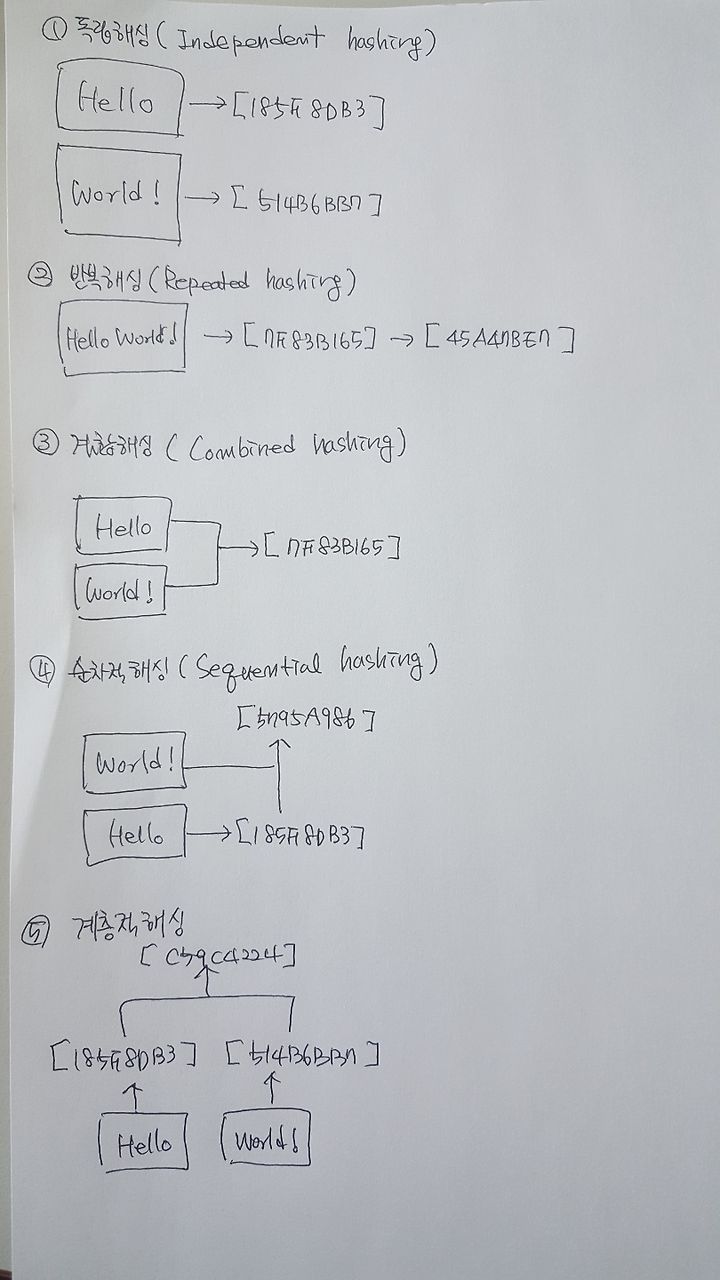 ① 독립해싱 (Independent hashing)
Hello → [185F8DB3]
World! → [514B6BB7]
② 반복해싱 (Repeated hashing)
Hello World! → [7F83B165] → [45A47BE7]
③ 결합해싱 (Combined hashing)
Hello
→ [7F83B165]
World!
④ 순차적해싱 (Sequential hashing)
[5795A986]
World!
Hello → [185F8DB3]
⑤ 계층적해싱
[C59C4224]
[185F8DB3] [514B6BB7]
Hello World!